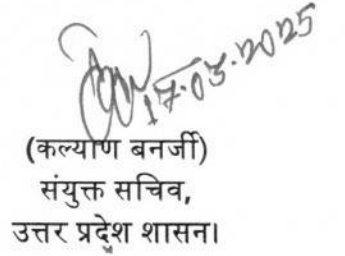 17.03.2025
(कल्याण बनर्जी)
संयुक्त सचिव,
उत्तर प्रदेश शासन।